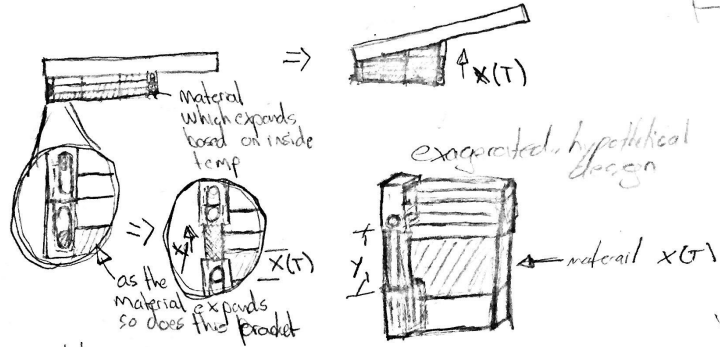 =>
X(T)
material
which expands
based on inside
temp
exagerated, hypothetical
design
=>
X
X(T)
Y
materail X(T)
as the
material expands
so does this bracket